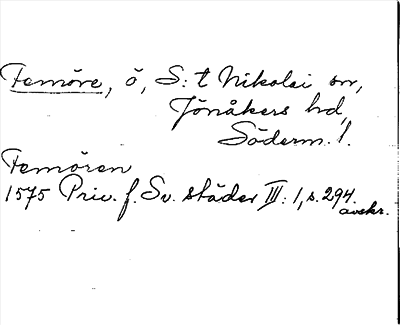 Femöre, ö, S:t Nikolai sn,
Jönåkers hd,
Söderm. l.
Femören
1575 Priv. f. Sv. städer III: 1, s. 294.
avskr.